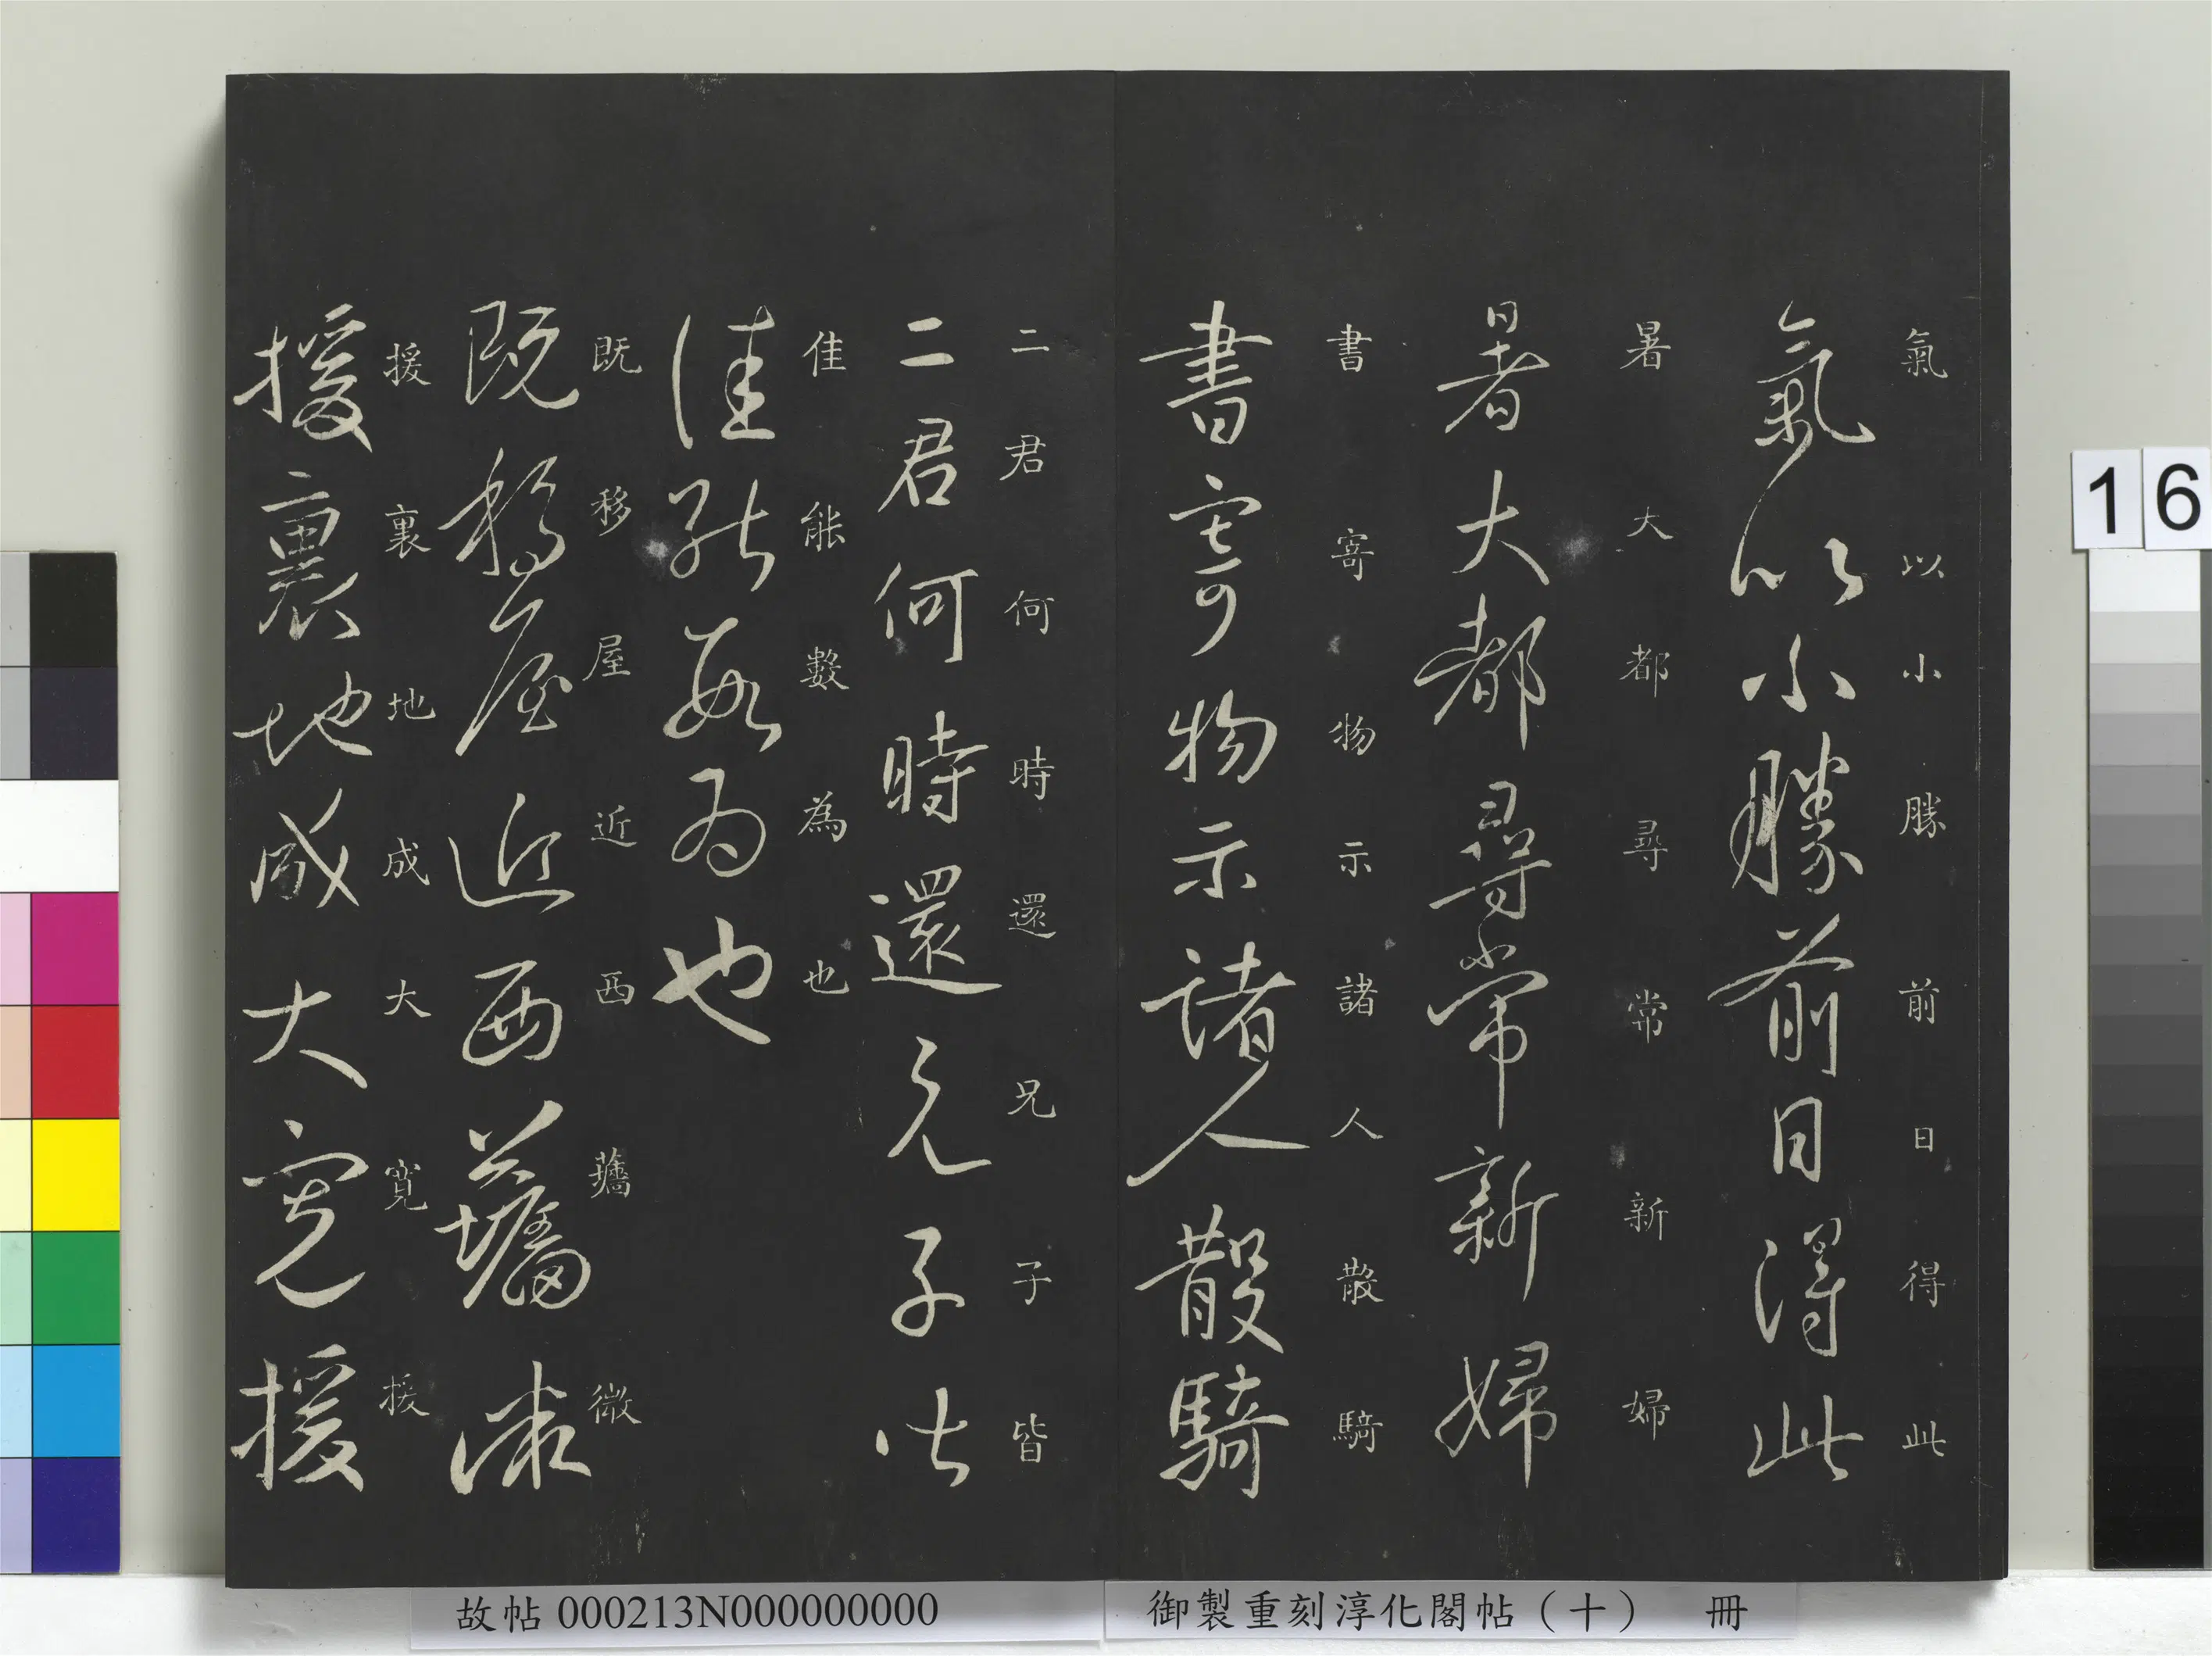 氣以小勝前日得此
氣以小勝前日得此
暑大都尋常新婦
暑大都尋常新婦
書寄物示諸人散騎
書寄物示諸人散騎
二君何時還兄子皆
二君何時還兄子皆
佳能數為也
佳能數為也
既移屋近西蘠微
既移屋近西蘠微
援裏地成大寬援
援裏地成大寬援
16
御製重刻淳化閣帖（十） 冊
故帖000213N000000000